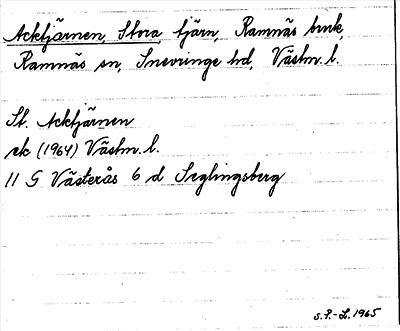 Acktjärnen, Stora tjärn, Ramnäs bruk,
Ramnäs sn, Snevringe hd, Västm. l.
St. Acktjärnen
ek (1964) Västm. l.
11 G Västerås 6 d Seglingsberg
S.P.-L. 1965